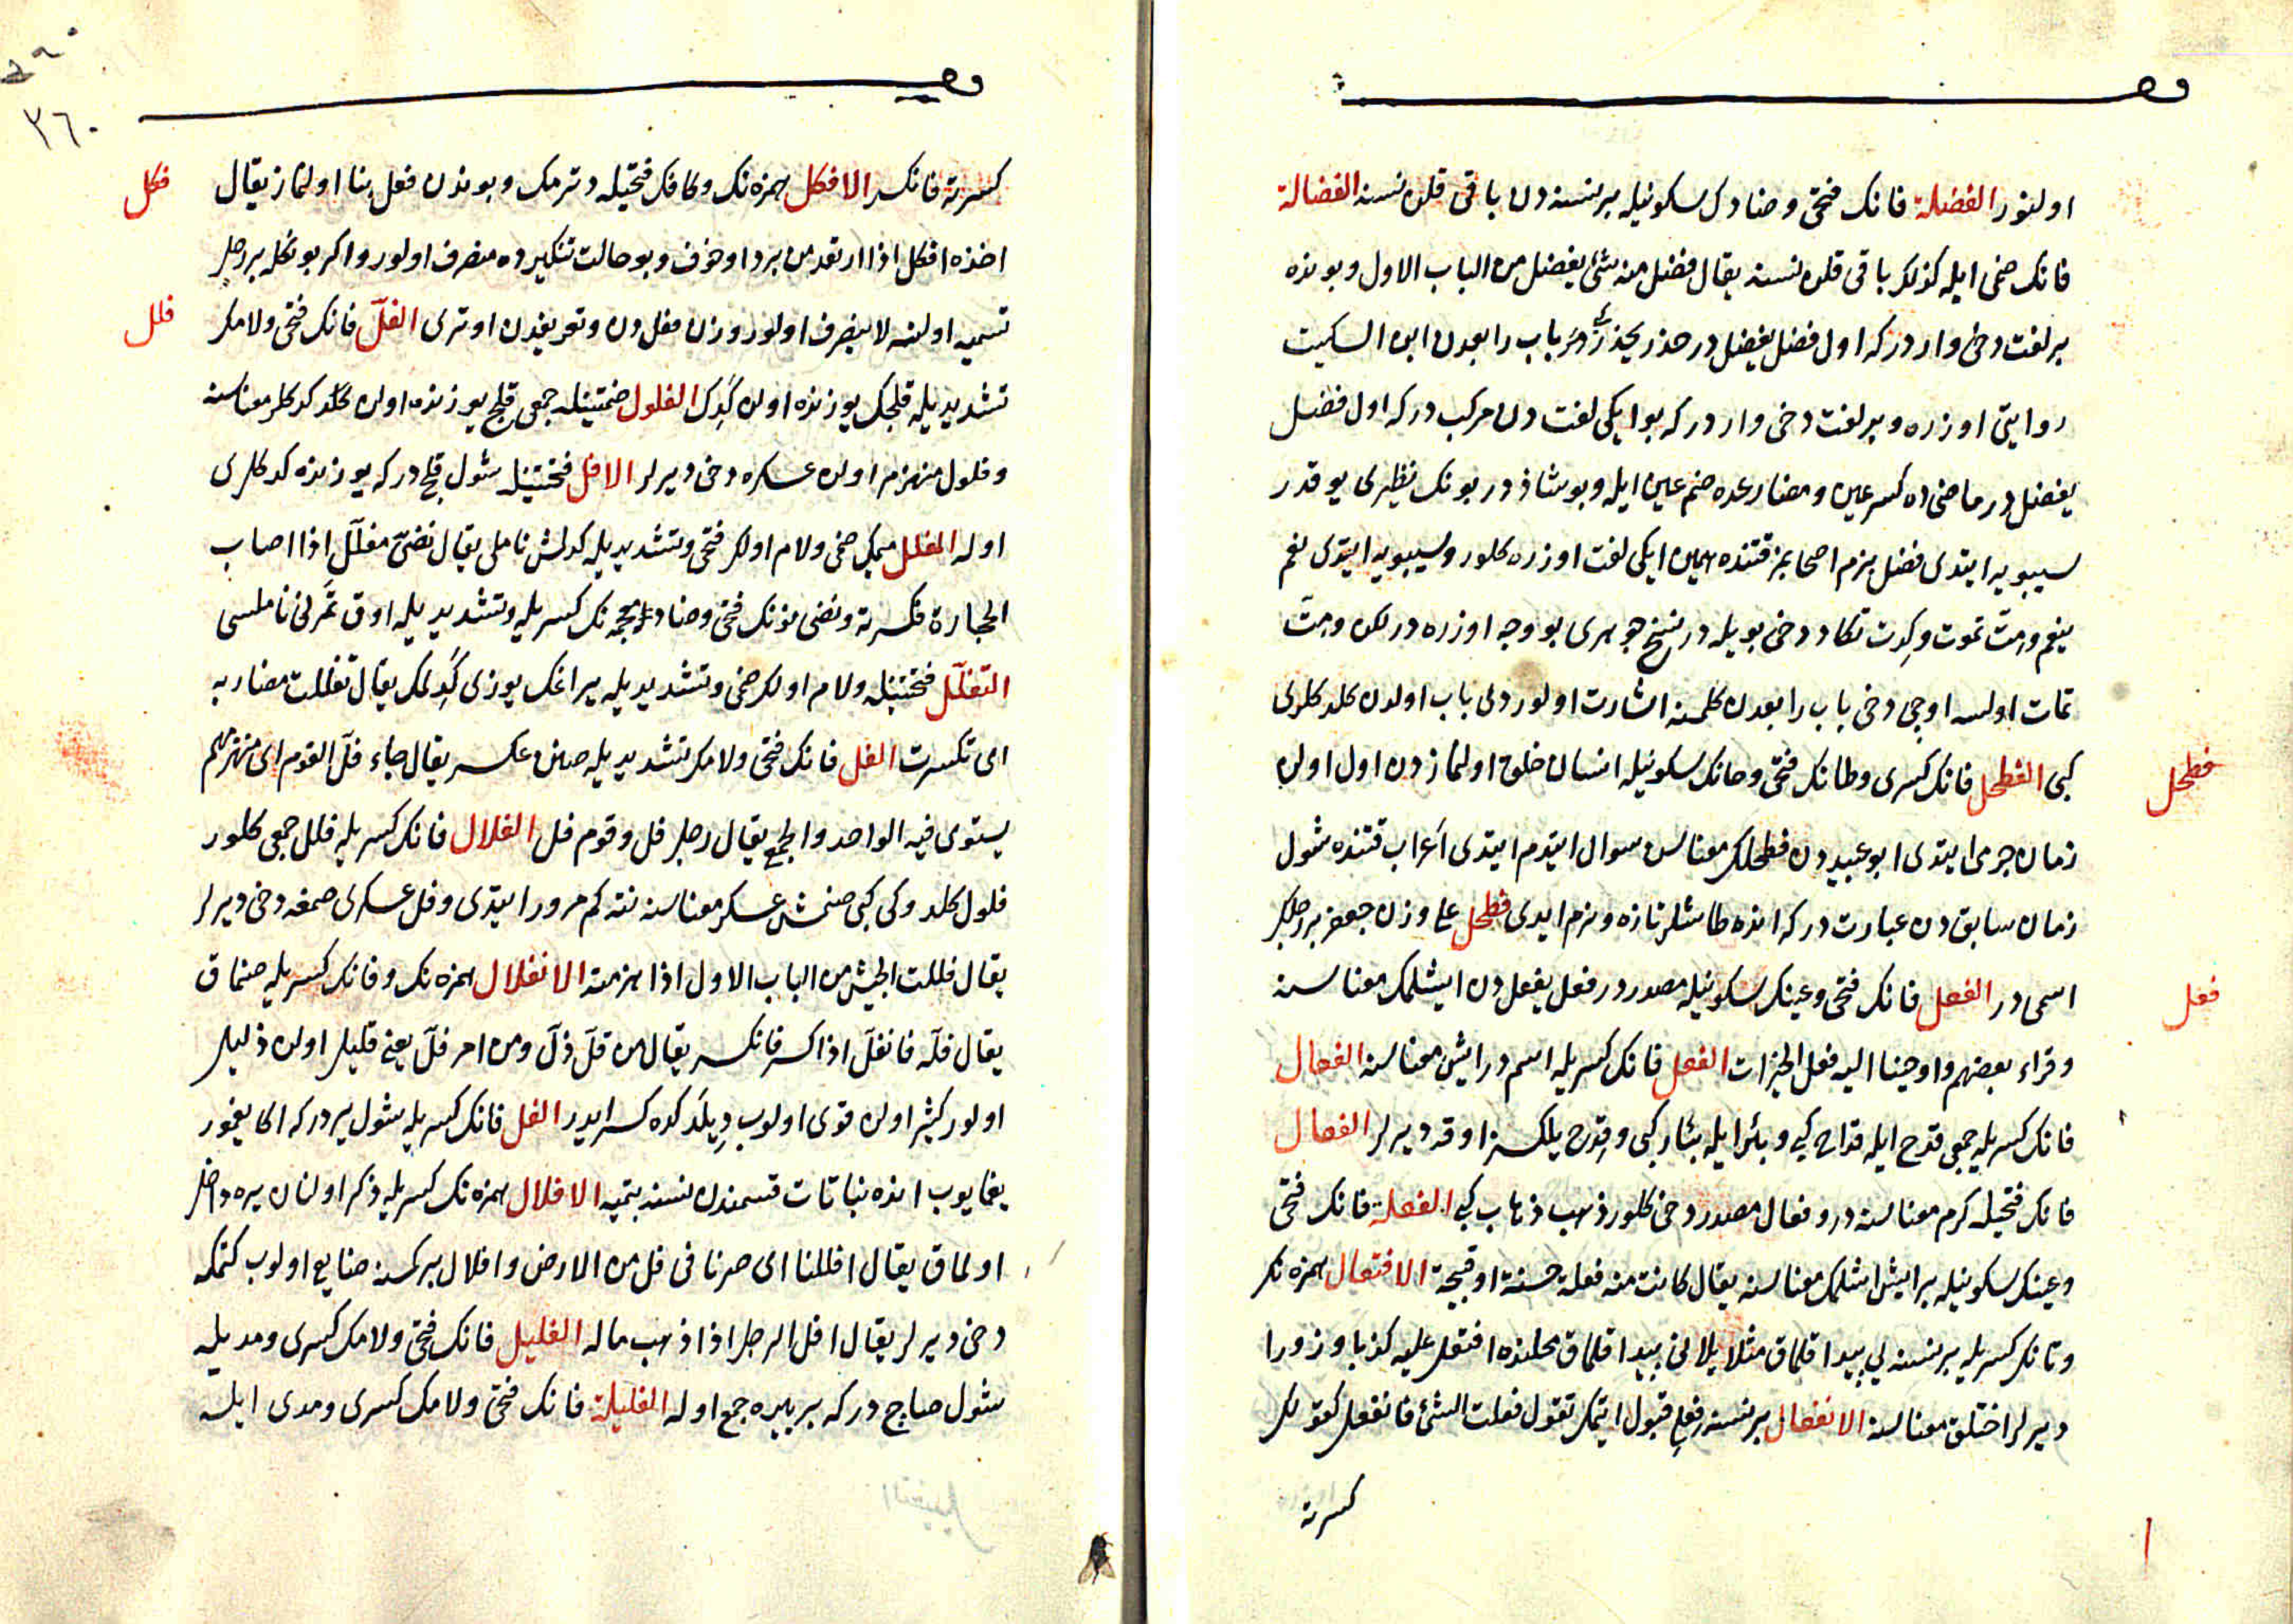 اولنور الفضلة فانك فتحى وضادك سكونيله بر نسنه دن باقى قلن نسنه الفضالة
فانك ضمى ايله كذلك باقى قلن نسنه يقال فضل منه شئ يفضل من الباب الاول وبونده
بر لغت دخى واردر كه اول فضل يفضل در حذر يحذر كبى باب رابعدن ابن السكيت
روايتى اوزره وبر لغت دخى واردر كه بو ايكى لغت دن مركب در كه اول فضل
يفضل در ماضى ده كسر عين ومضارعده ضم عين ايله وبو شاذ در بونك نظيرى يوقدر
سيبويه ايتدى فضل بزم اصحابمز قتنده همين ايكى لغت اوزره كلور وسيبويه ايتدى نعم
ينعم ومت تموت وكدت تكاد دخى بويله در نسخ جوهرى بو وجه اوزره در لكن ومت
تمات اولسه اوجى دخى باب رابعدن كلمنه اشارت اولوردى باب اولدن كلدكلرى
كبى الفطحل فانك كسرى وطانك فتحى وحانك سكونيله انسان خلق اولنمازدن اول اولن
زمان جرمى ايتدى ابو عبيدن فطحلك معناسن سوال ايتدم ايتدى اعراب قتنده شول
زمان سابقدن عبارت در كه انده طاشلر تازه ونرم ايدى فطحل على وزن جعفر بر رجلك
اسمى در الفعل فانك فتحى وعينك سكونيله مصدر در فعل يفعل دن ايشلمك معناسنه
وقراء بعضهم واوحينا اليه فعل الخيرات الفعل فانك كسريله اسم در ايش معناسنه الفعال
فانك كسريله جمعى قدح ايله قداح كبى وبئر ايله بئار كبى وقدح يلكسز اوقه ديرلر الفعال
فانك فتحيله كرم معناسنه در وفعال مصدر دخى كلور ذهب ذهاب كبى الفعلة فانك فتحى
وعينك سكونيله بر ايش ايشلمك معناسنه يقال كانت منه فعلة حسنة او قبيحة الافتعال همزه نك
وتانك كسريله بر نسنه يى پيدا قلماق مثلا يلانى پيدا قلماق محلنده افتعل عليه كذبا وزورا
ديرلر اختلق معناسنه الانفعال بر نسنه فعلى قبول ايتمك تقول فعلت الشئ فانفعل كقولك
كسرته
فطحل
فعل
كسرته فانكسر الافكل همزه نك وكافك فتحيله دترمك وبوندن فعل بنا اولنماز يقال
اخذه افكل اذا ارتعد من برد او خوف وبو حالت تنكيرده منصرف اولور واكر بونكله بر رجل
تسميه اولنسه لا ينصرف اولور وزن فعل دن وتعريفدن اوترى الفل فانك فتحى ولامك
تشديديله قلجك يوزنده اولن كدك الفلول ضمتينله جمعى قلج يوزنده اولن كدكلر معناسنه
وفلول منهزم اولن عسكره دخى ديرلر الافل فتحتينله شول قلج در كه يوزنده كدكلرى
اوله المفلل ميمك ضمى ولام اولك فتحى وتشديديله كدلش ناملى يقال نضى مفلل اذا اصاب
الحجارة فكسرته ونضى نونك فتحى وضاد معجمه نك كسريله وتشديديله اوق تمرنى ناملسى
التفلل فتحتينله ولام اولك ضمى وتشديديله يراغك يوزى كدلمك يقال تفللت مضاربه
اى تكسرت الفل فانك فتحى ولامك تشديديله صنن عسكر يقال جاء فل القوم اى منهزمهم
يستوى فيه الواحد والجمع يقال رجل فل وقوم فل الفلال فانك كسريله فلل جمعى كلور
فلول كلدوكى كبى صنمش عسكر معناسنه نته كم مرور ايتدى وفل عسكرى صمغه دخى ديرلر
يقال فللت الجيش من الباب الاول اذا هزمته الانفلال همزه نك وفانك كسريله صنماق
يقال فله فانفل اذا كسر فانكسر يقال من قل ذل ومن امر فل يعنى قليل اولن ذليل
اولور كثير اولن قوى اولوب ديلدكده كسر ايدر الفل فانك كسريله شول ير در كه اكا يغمور
يغمايوب انده نباتات قسمندن نسنه بتميه الافلال همزه نك كسريله ذكر اولنان يره داخل
اولماق يقال افللنا اى صرنا فى فل من الارض وافلال بر كسنه ضايع اولوب كتمكه
دخى ديرلر يقال افل الرجل اذا ذهب ماله الفليل فانك فتحى ولامك كسرى ومديله
شول صاج در كه بر يره جمع اوله الفليلة فانك فتحى ولامك كسرى ومدى ايله
فكل
فلل
٣٦٠